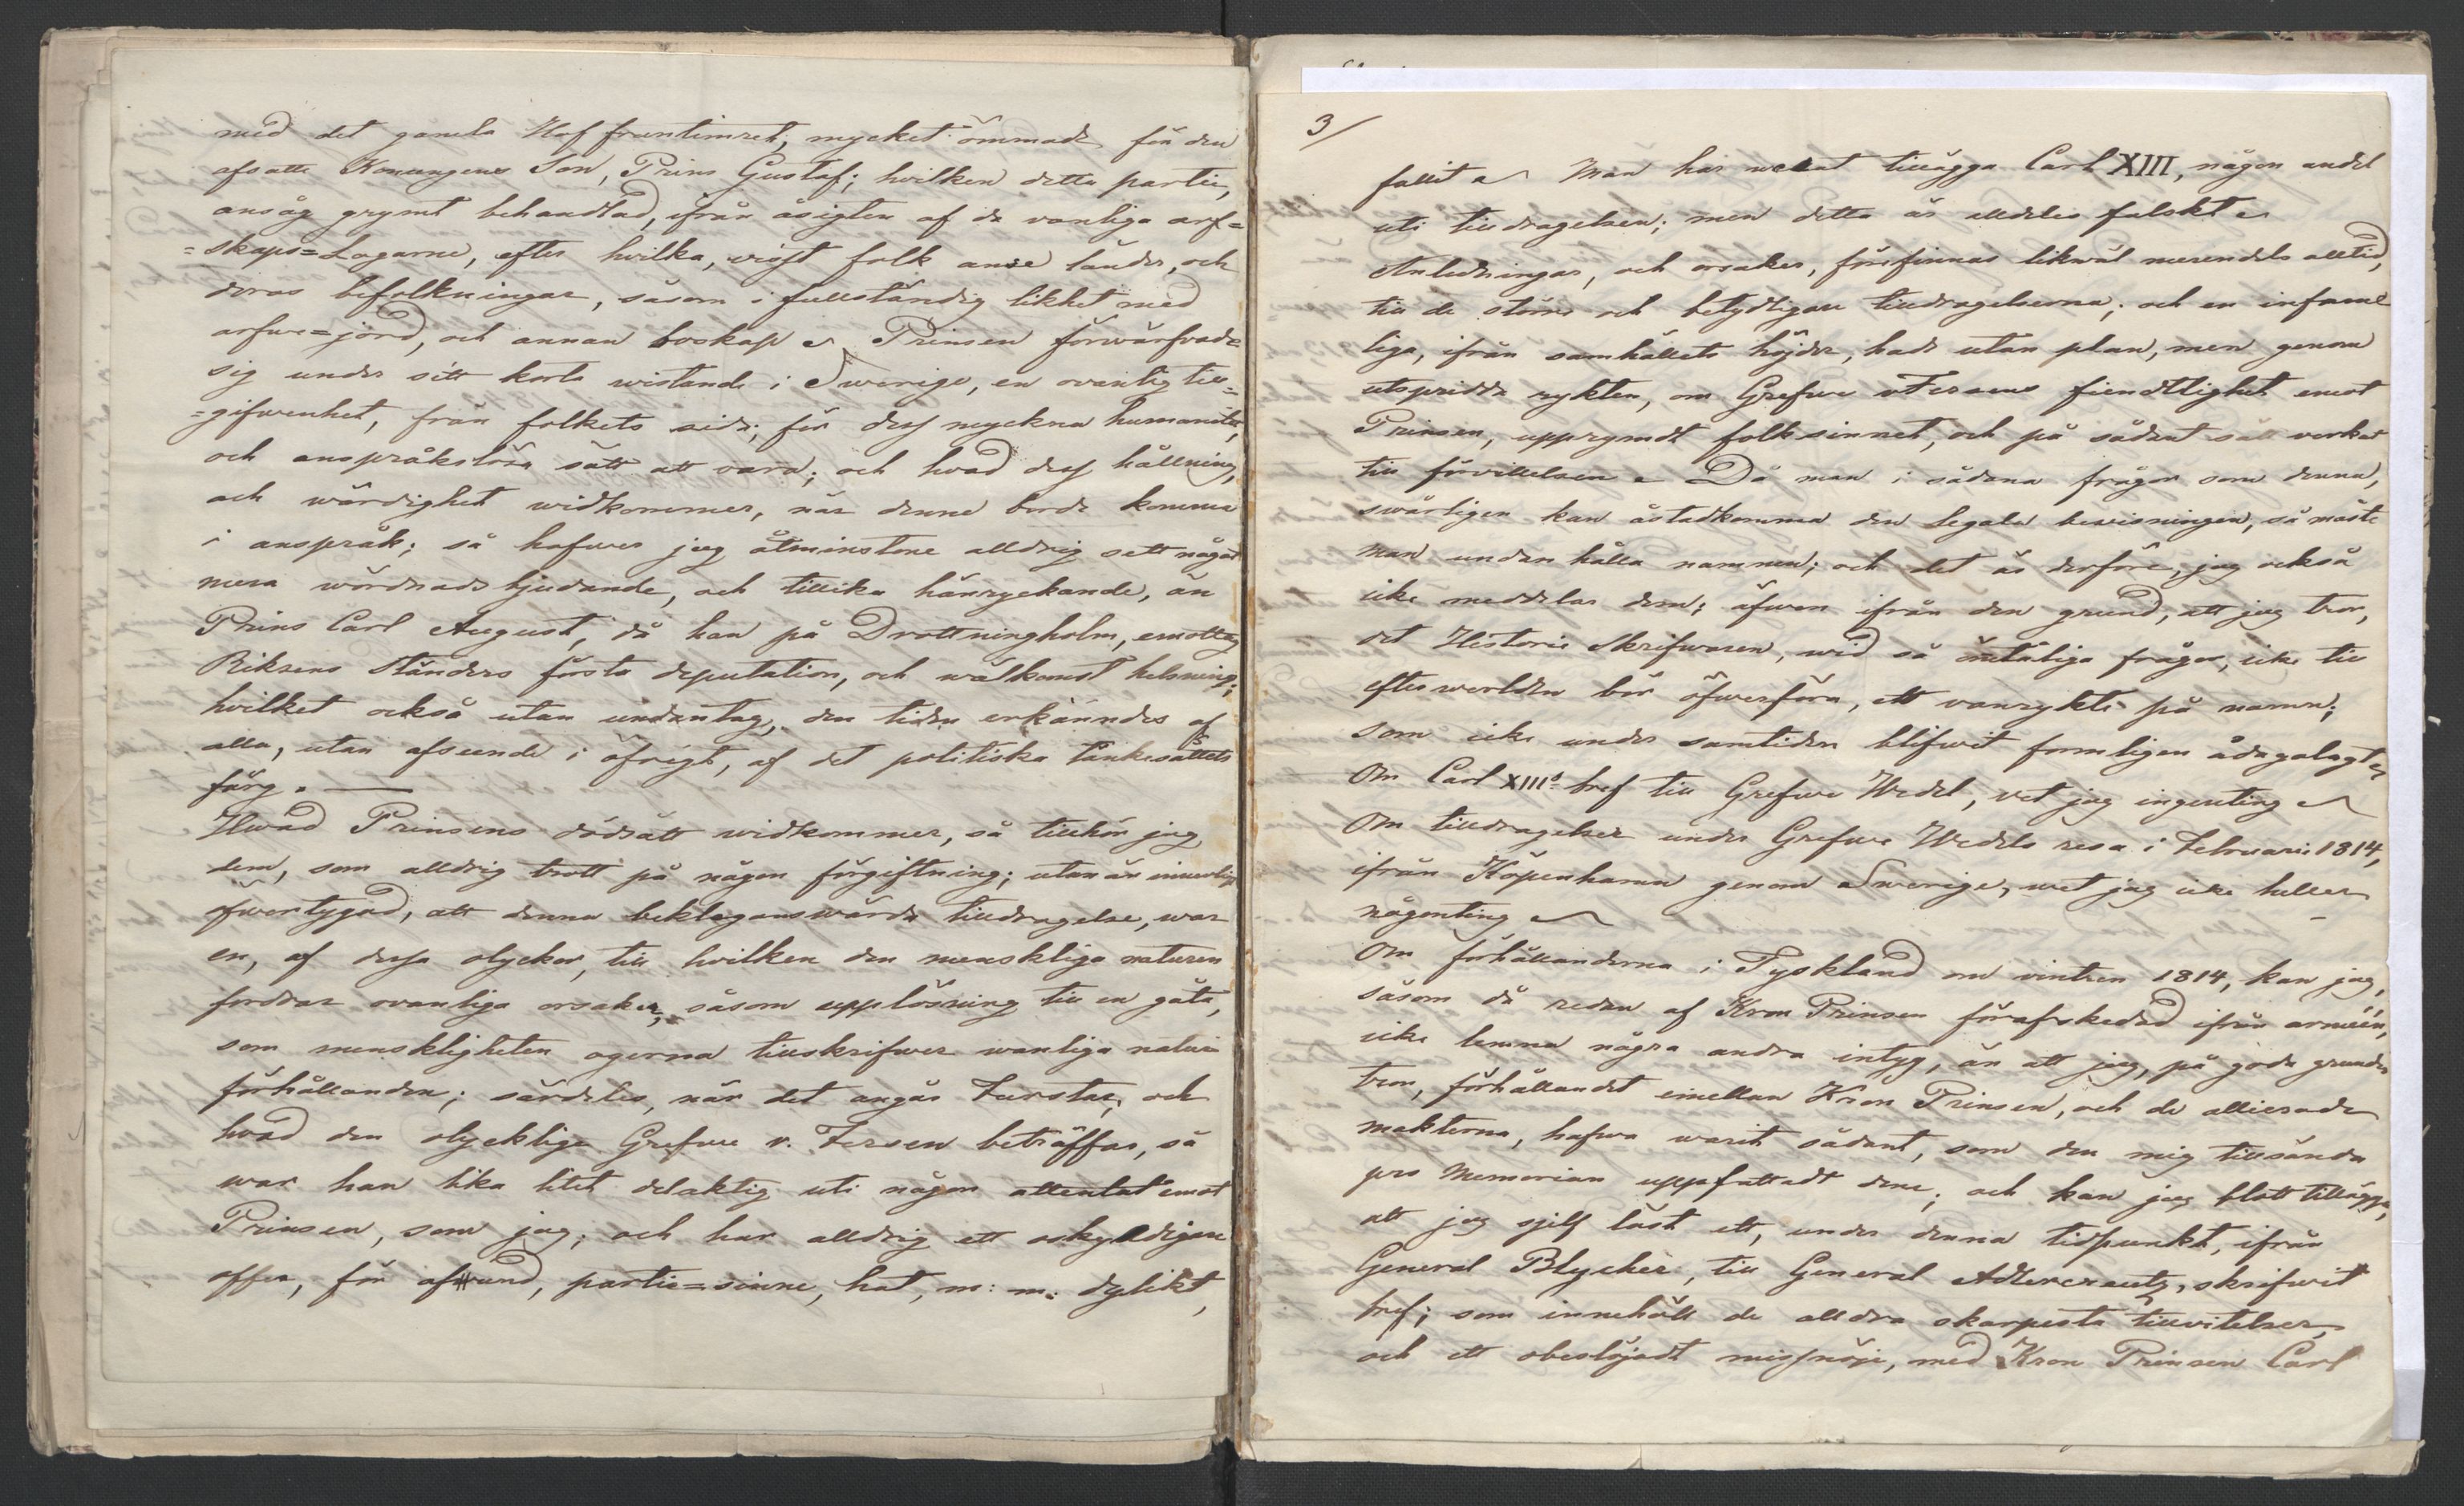 med det gamla Hof fruntimret, mycket ömmade för den
afsatte Konungens Son, Prins Gustaf; hvilken detta partie,
ansåg grymt behandlad, ifrån åsigten af de vanliga arf=
=skaps=Lagarne, efter hvilka, visst folk anse länder, och
deras befolkningar, såsom i fullständig likhet med
arfwe=jord, och annan boskap. Prinsen förwärfvade
sig under sitt korta wistande i Swerige, en ovanlig till=
=gifwenhet, från folkets sida; för dess myckna humanitet,
och anspråkslösa sätt att vara; och hvad dess hållning,
och wärdighet widkommer, när denne borde komma
i anspråk; så hafwer jag åtminstone alldrig sett något
mera wördnads bjudande, och tillika hänryckande, än
Prins Carl August, då han på Drottningholm, emottog
Riksens Ständers första deputation, och wälkomst helsning;
hvilket också utan undantag, den tiden erkänndes af
alla, utan afseende i öfrigt, af det politiska tänkesättets
färg. —
Hwad Prinsens dödsätt widkommer, så tillhör jag
dem, som alldrig trott på någon förgiftning; utan är innerligt
öfwertygad, att denna beklaganswärda tilldragelse, war
en, af dessa olyckor, till hvilken den menskliga naturen
fordrar ovanliga orsaker, såsom upplösning till en gåta,
som menskligheten ogerna tillskrifwer wanliga natur
förhållanden; särdeles, när det angår Furstar, och
hvad den olycklige Grefwe v. Fersen beträffar, så
war han lika litet delaktig uti någon attentat emot
Prinsen, som jag; och har alldrig ett oskyldigare
offer, för afund, partie=sinne, hat, m: m: dylikt,
3/
fallit. Man har welat tillägga Carl XIII, någon andel
uti tilldragelsen; men detta är alldeles falskt.
Anledningar, och orsaker, förefinnas likwäl merendels alltid,
till de större och betydligare tilldragelserna; och en infame
liga, ifrån samhällets höjder, hade utan plan, men genom
utspridda rykten, om Grefwe v Fersens fiendtlighet emot
Prinsen, upprymdt folksinnet, och på sådant sätt verkat
till förvillelsen. Då man i sådana frågor som denna,
swårligen kan åstadkomma den legala bewisningen, så måste
man undan hålla namnen; och det är derföre, jag också
icke meddelar dem; äfwen ifrån den grund, att jag tror,
det Historie Skrifwaren, wid så ömtåliga frågor, icke till
efterwerlden bör öfwerföra, ett vanrykte på namn;
som icke under samtiden blifwit formligen ådagalagt.
Om Carl XIIIs bref till Grefwe Wedel, vet jag ingenting.
Om tilldragelser under Grefwe Wedels resa i Februari 1814,
ifrån Köpenhamn genom Swerige, wet jag icke heller
någonting.
Om förhållanderna i Tyskland om vintren 1814, kan jag,
såsom då redan af Kron Prinsen förafskedad ifrån arméen,
icke lemna några andra intyg, än att jag, på goda grunder
tror, förhållandet emellan Kron Prinsen, och de allierade
makterna, hafwa warit sådant, som den mig tillsända
pro Memorian uppfattadt dem; och kan jag blott tillägga,
att jag sjelf läst ett, under denna tidpunkt, ifrån
General Blycher, till General Adlercreutz, skrifwit
bref; som innehöll de alldra skarpesta tillvitelser,
och ett obeslöjadt missnöje, med Kron Prinsen Carl